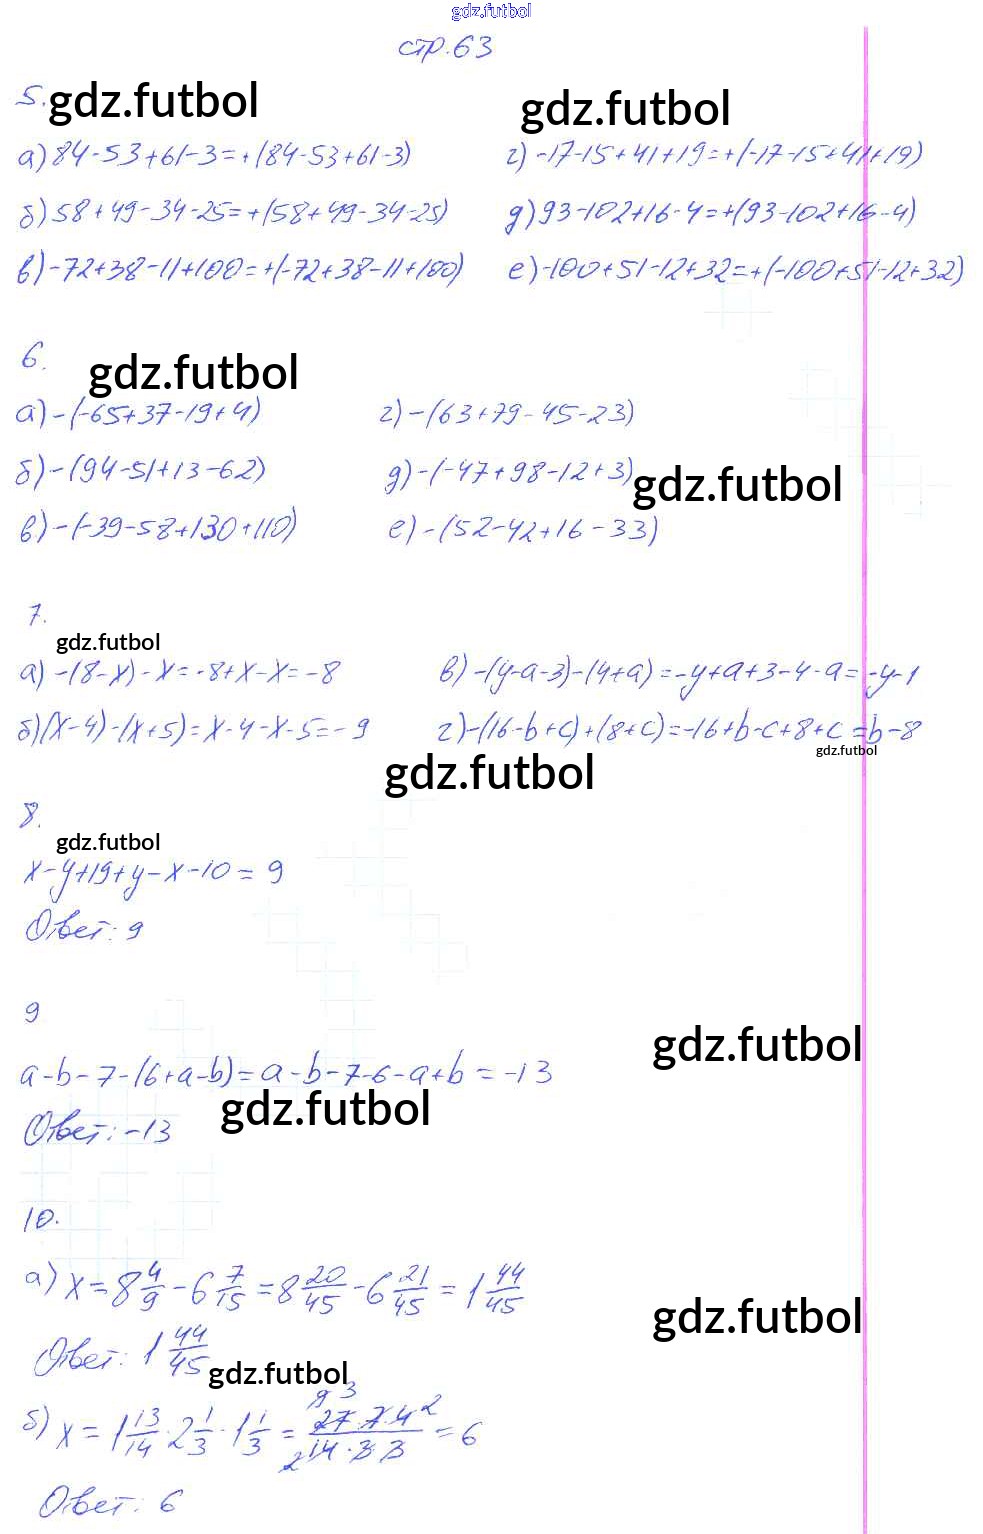 gdz.futbol
стр.63
5. gdz.futbol gdz.futbol
а) 84-53+61-3=+(84-53+61-3) г) -17-15+41+19=+(-17-15+41+19)
б) 58+49-34-25=+(58+49-34-25) д) 93-102+16-4=+(93-102+16-4)
в) -72+38-11+100=+(-72+38-11+100) е) -100+51-12+32=+(-100+51-12+32)
6. gdz.futbol
а) -(-65+37-19+4) г) -(63+79-45-23)
б) -(94-51+13-62) д) -(-47+98-12+3) gdz.futbol
в) -(-39-58+130+110) е) -(52-42+16-33)
7.
gdz.futbol
а) -(8-x)-x=-8+x-x=-8 в) -(y-a-3)-(4+a)=-y+a+3-4-a=-y-1
б) (x-4)-(x+5)=x-4-x-5=-9 г) -(16-b+c)+(8+c)=-16+b-c+8+c=b-8
gdz.futbol
gdz.futbol
8.
gdz.futbol
x-y+19+y-x-10=9
Ответ: 9
9
gdz.futbol
a-b-7-(6+a-b)=a-b-7-6-a+b=-13
gdz.futbol
Ответ: -13
10.
а) x=8 4/9 - 6 7/15 = 8 20/45 - 6 21/45 = 1 44/45
gdz.futbol
Ответ: 1 44/45
gdz.futbol
б) x = 1 13/14 · 2 1/3 · 1 1/3 = 27·7·4/14·3·3 = 6
Ответ: 6